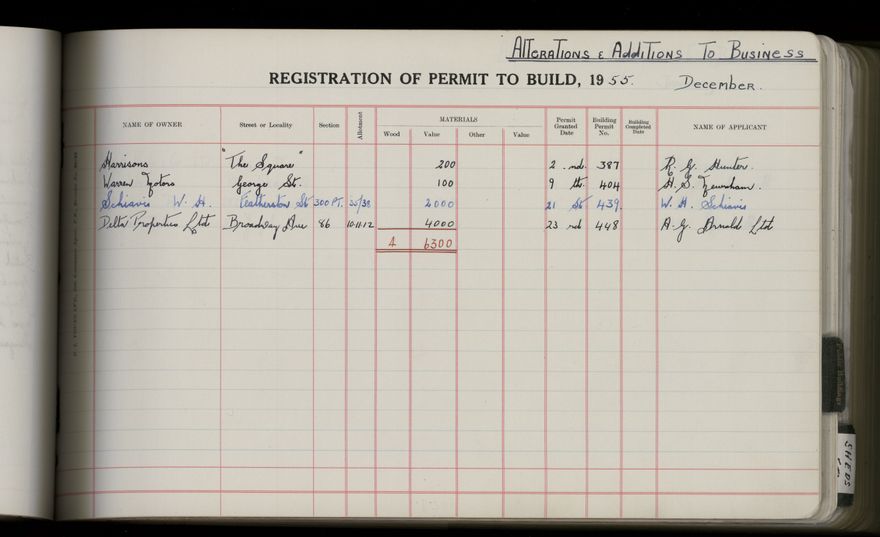 Alterations & Additions To Business
REGISTRATION OF PERMIT TO BUILD, 1955. December.
NAME OF OWNER Street or Locality Section Allotment MATERIALS Permit Granted Date Building Permit No. Building Completed Date NAME OF APPLICANT
Wood Value Other Value
Harrisons "The Square" 200 2.nd. 387 R. G. Hunter.
Warren Motors George St. 100 9 th. 404 H. S.
Schiavis W. H. Featherston St 300 PT. 35/38 2000 21 St 439. W. H. Schiavis
Delta Properties Ltd Broadway Ave 86 10.11.12 4000 23 nd 448 A. G. Arnold Ltd
4 6300
SHEDS